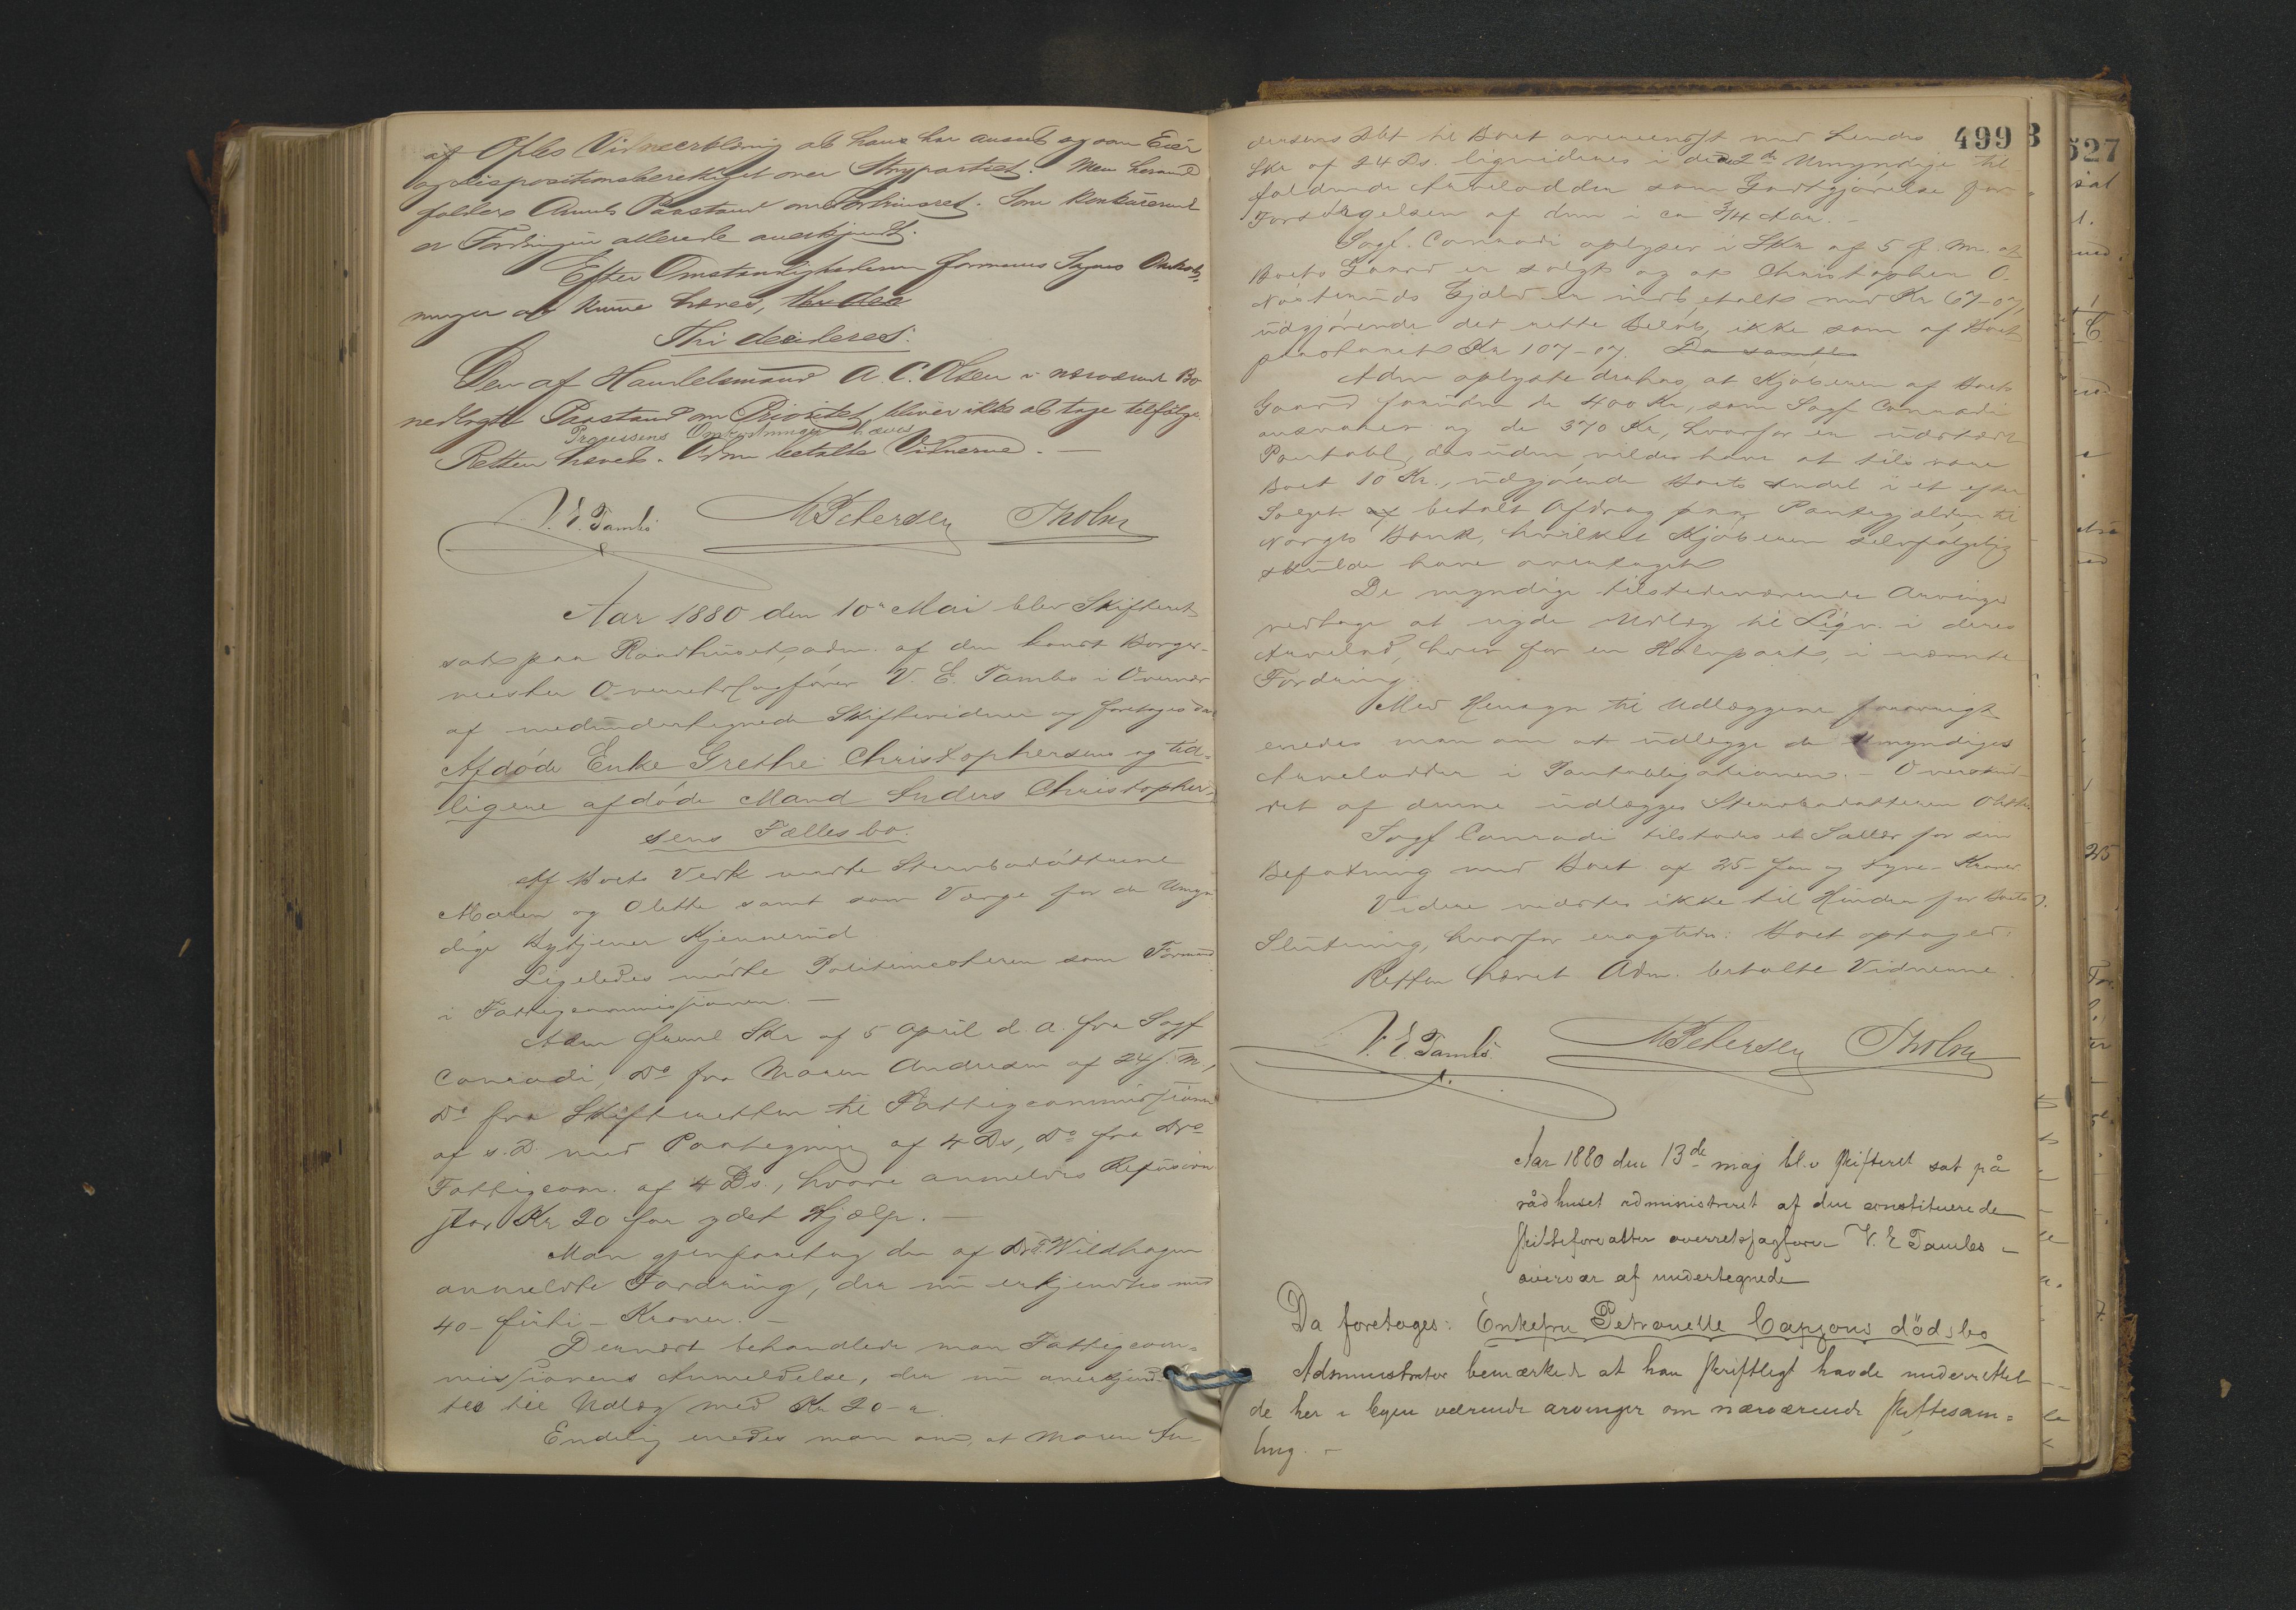 af Ofles Vidneerklæring at have har anseet sig som Eier
og dispositionsberettiget over Strypartiet. Men herved
falder Anmts Paastand om Forhinsret. Som Konkurerende
er Fordringen allerede anerkjendt.
Efter Omstændighederne formenes Sagens Omkost-
ninger at kunne hæves, 
Thi decideres:
Den af Handelsmand A. C. Olsen i nærværende Bo
nedlagte Paastand om Prioritet bliver ikke at tage tilfølge.
Processens Omkostninger hæves
Retten hævet. Adm betalte Vidnerne. —
V. E. Tambs MPetersen Tholm
Aar 1880 den 10de Mai blev Skifteret
sat paa Raadhuset, adm. af den const Borger-
mester Overretssagfører V. E. Tambs i Overvær
af nedundertegnede Skiftevidner og foretoges da
Afdøde Enke Grethe Christophersens og tid-
ligere afdøde Mand Anders Christopher-
sens Fællesbo.
Af Boets Vedk mødte Stervbodøttrene
Maren og Olette samt som Værge for de Umyn
dige Bytjener Kjennerud
Ligeledes mødte Politimesteren som Formand
i Fattigcommissionen. —
Adm freml Skr af 5 April d. A. fra Sagf
Conradi, Do fra Maren Andersen af 24 f. M,
Do fra Skifteretten til Fattigcommissionen
af s. D. med Paategning af 4 Ds, Do fra Do
Fattigcom. af 4 Ds., hvori anmeldes Refusion
for Kr 20 for ydet Hjælp. —
Man gjenforetog den af Dr F. Wildhagen
anmeldte Fordring, der nu erkjendtes med
40 - førti - Kroner. —
Dernæst behandlede man Fattigcom-
missionens Anmeldelse, der nu anerkjend-
tes til Udlæg med Kr 20 -
Endelig enedes man om, at Maren An-
499
dersens Dbt til Boet overensst med hendes
Skr af 24 Ds. liqvideres i de 2de Umyndige til-
faldende Arvelodder som Godtgjørelse for
Forsørgelsen af dem i ca 3/4 Aar. —
Sagf. Conradi oplyser i Skr af 5 f. M. at
Boets Gaard er solgt og at Christopher O.
Gjæld er indbetalt med Kr 67-07,
udgjørende det rette Beløb, ikke som af Boet
paastaaet Kr 107-07. Da samtl
Adm oplyste derhos, at Kjøberen af Boets
Gaard foruden de 400 Kr, som Sagf Conradi
ansvarer og de 370 Kr, hvorfor er udstædt
Pantobl, desuden vildes have at tilsvare
Boet 10 Kr., udgjørende Boets Andel i et efter
Salget af betalt Afdrag paa Pantegjælden til
Norges Bank, hvilket Kjøberen selvfølgelig
skulde have overtaget
De myndige tilstedeværende Arvinger
vedtage at nyde Udlæg til Liqv. i deres
Arvelod, hver for en Halvpart, i nævnte
Fordring.
Med Hensyn til Udlæggene forøvrigt
enedes man om at udlægge de Umyndiges
Arvelodder i Pantobligationen. — Overskud-
det af denne udlægges Stervbodatteren Olette
Sagf Conradi tilstodes et Salær for sin
Befatning med Boet af 25 - fem og tyve - Kroner
Videre vidstes ikke til Hinder for Boets
Slutning, hvorfor eragtedes: Boet optages:
Retten hævet Adm. betalte Vidnerne.
V. E. Tambs MPetersen Tholm
Aar 1880 den 13de maj blev skifteret sat på
rådhuset administreret af den constituerede
skifteforvalter overretssagfører V. E Tambs i
overvær af undertegnede
Da foretoges: Enkefru Petronelle Cappons dödsbo
Administrator bemærkede at han skriftligt havde underrettet
de her i byen værende arvinger om nærværende skiftesam=
ling. —
527